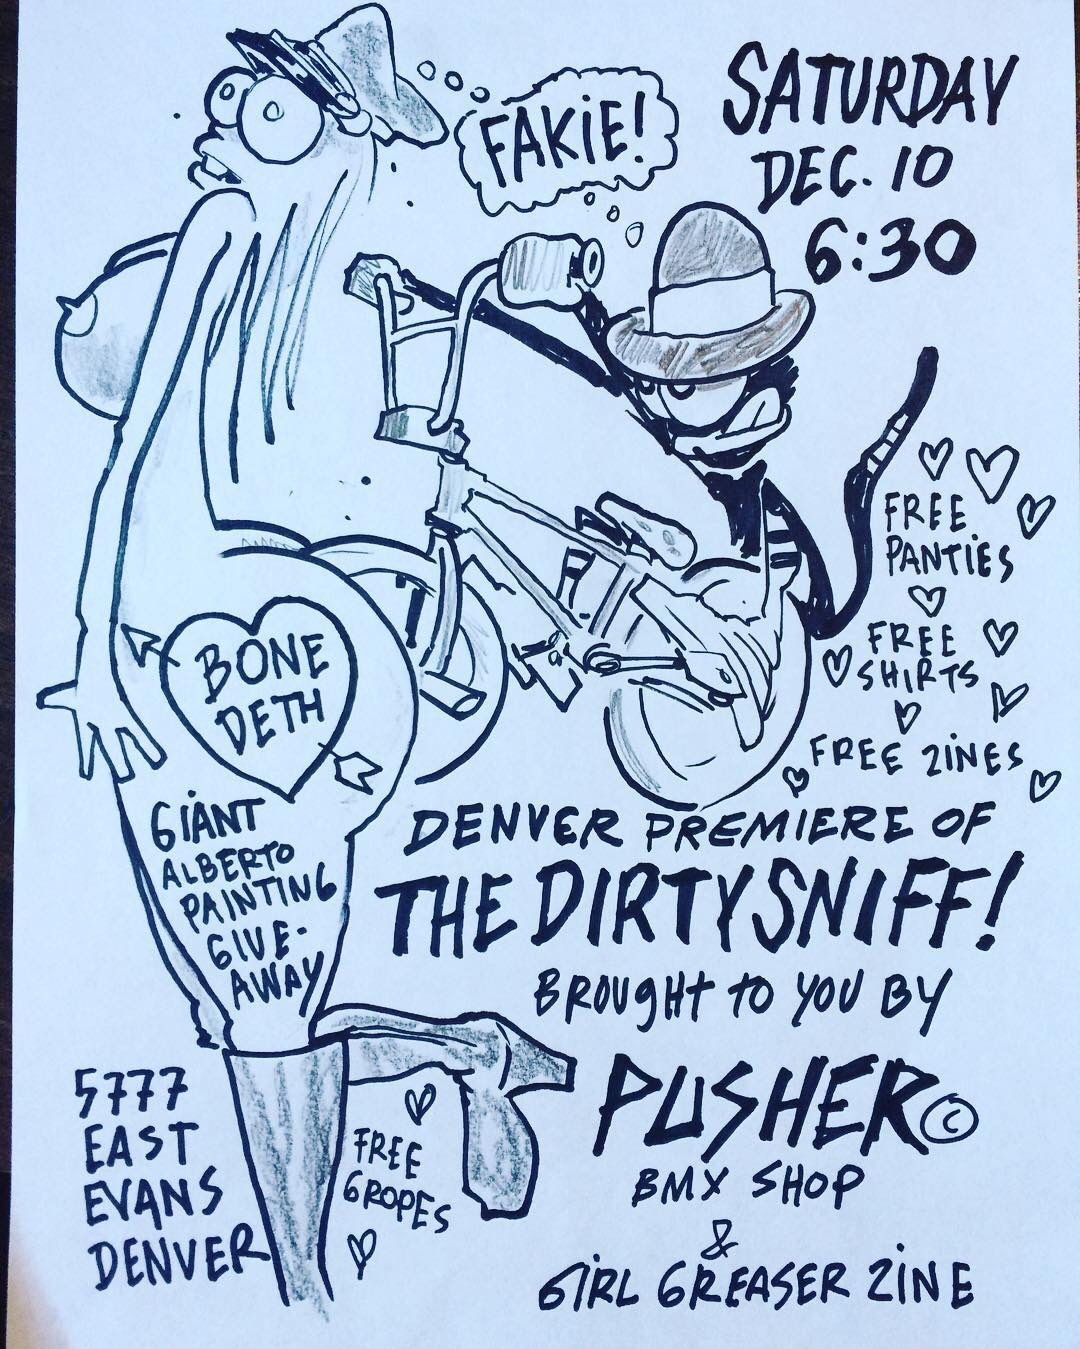 FAKIE!
SATURDAY
DEC. 10
6:30
FREE
PANTIES
FREE
SHIRTS
FREE ZINES
BONE
DETH
GIANT
ALBERTO
PAINTING
GIVE-
AWAY
DENVER PREMIERE OF
THE DIRTY SNIFF!
BROUGHT TO YOU BY
PUSHER ©
BMX SHOP
&
GIRL GREASER ZINE
5777
EAST
EVANS
DENVER
FREE
GROPES